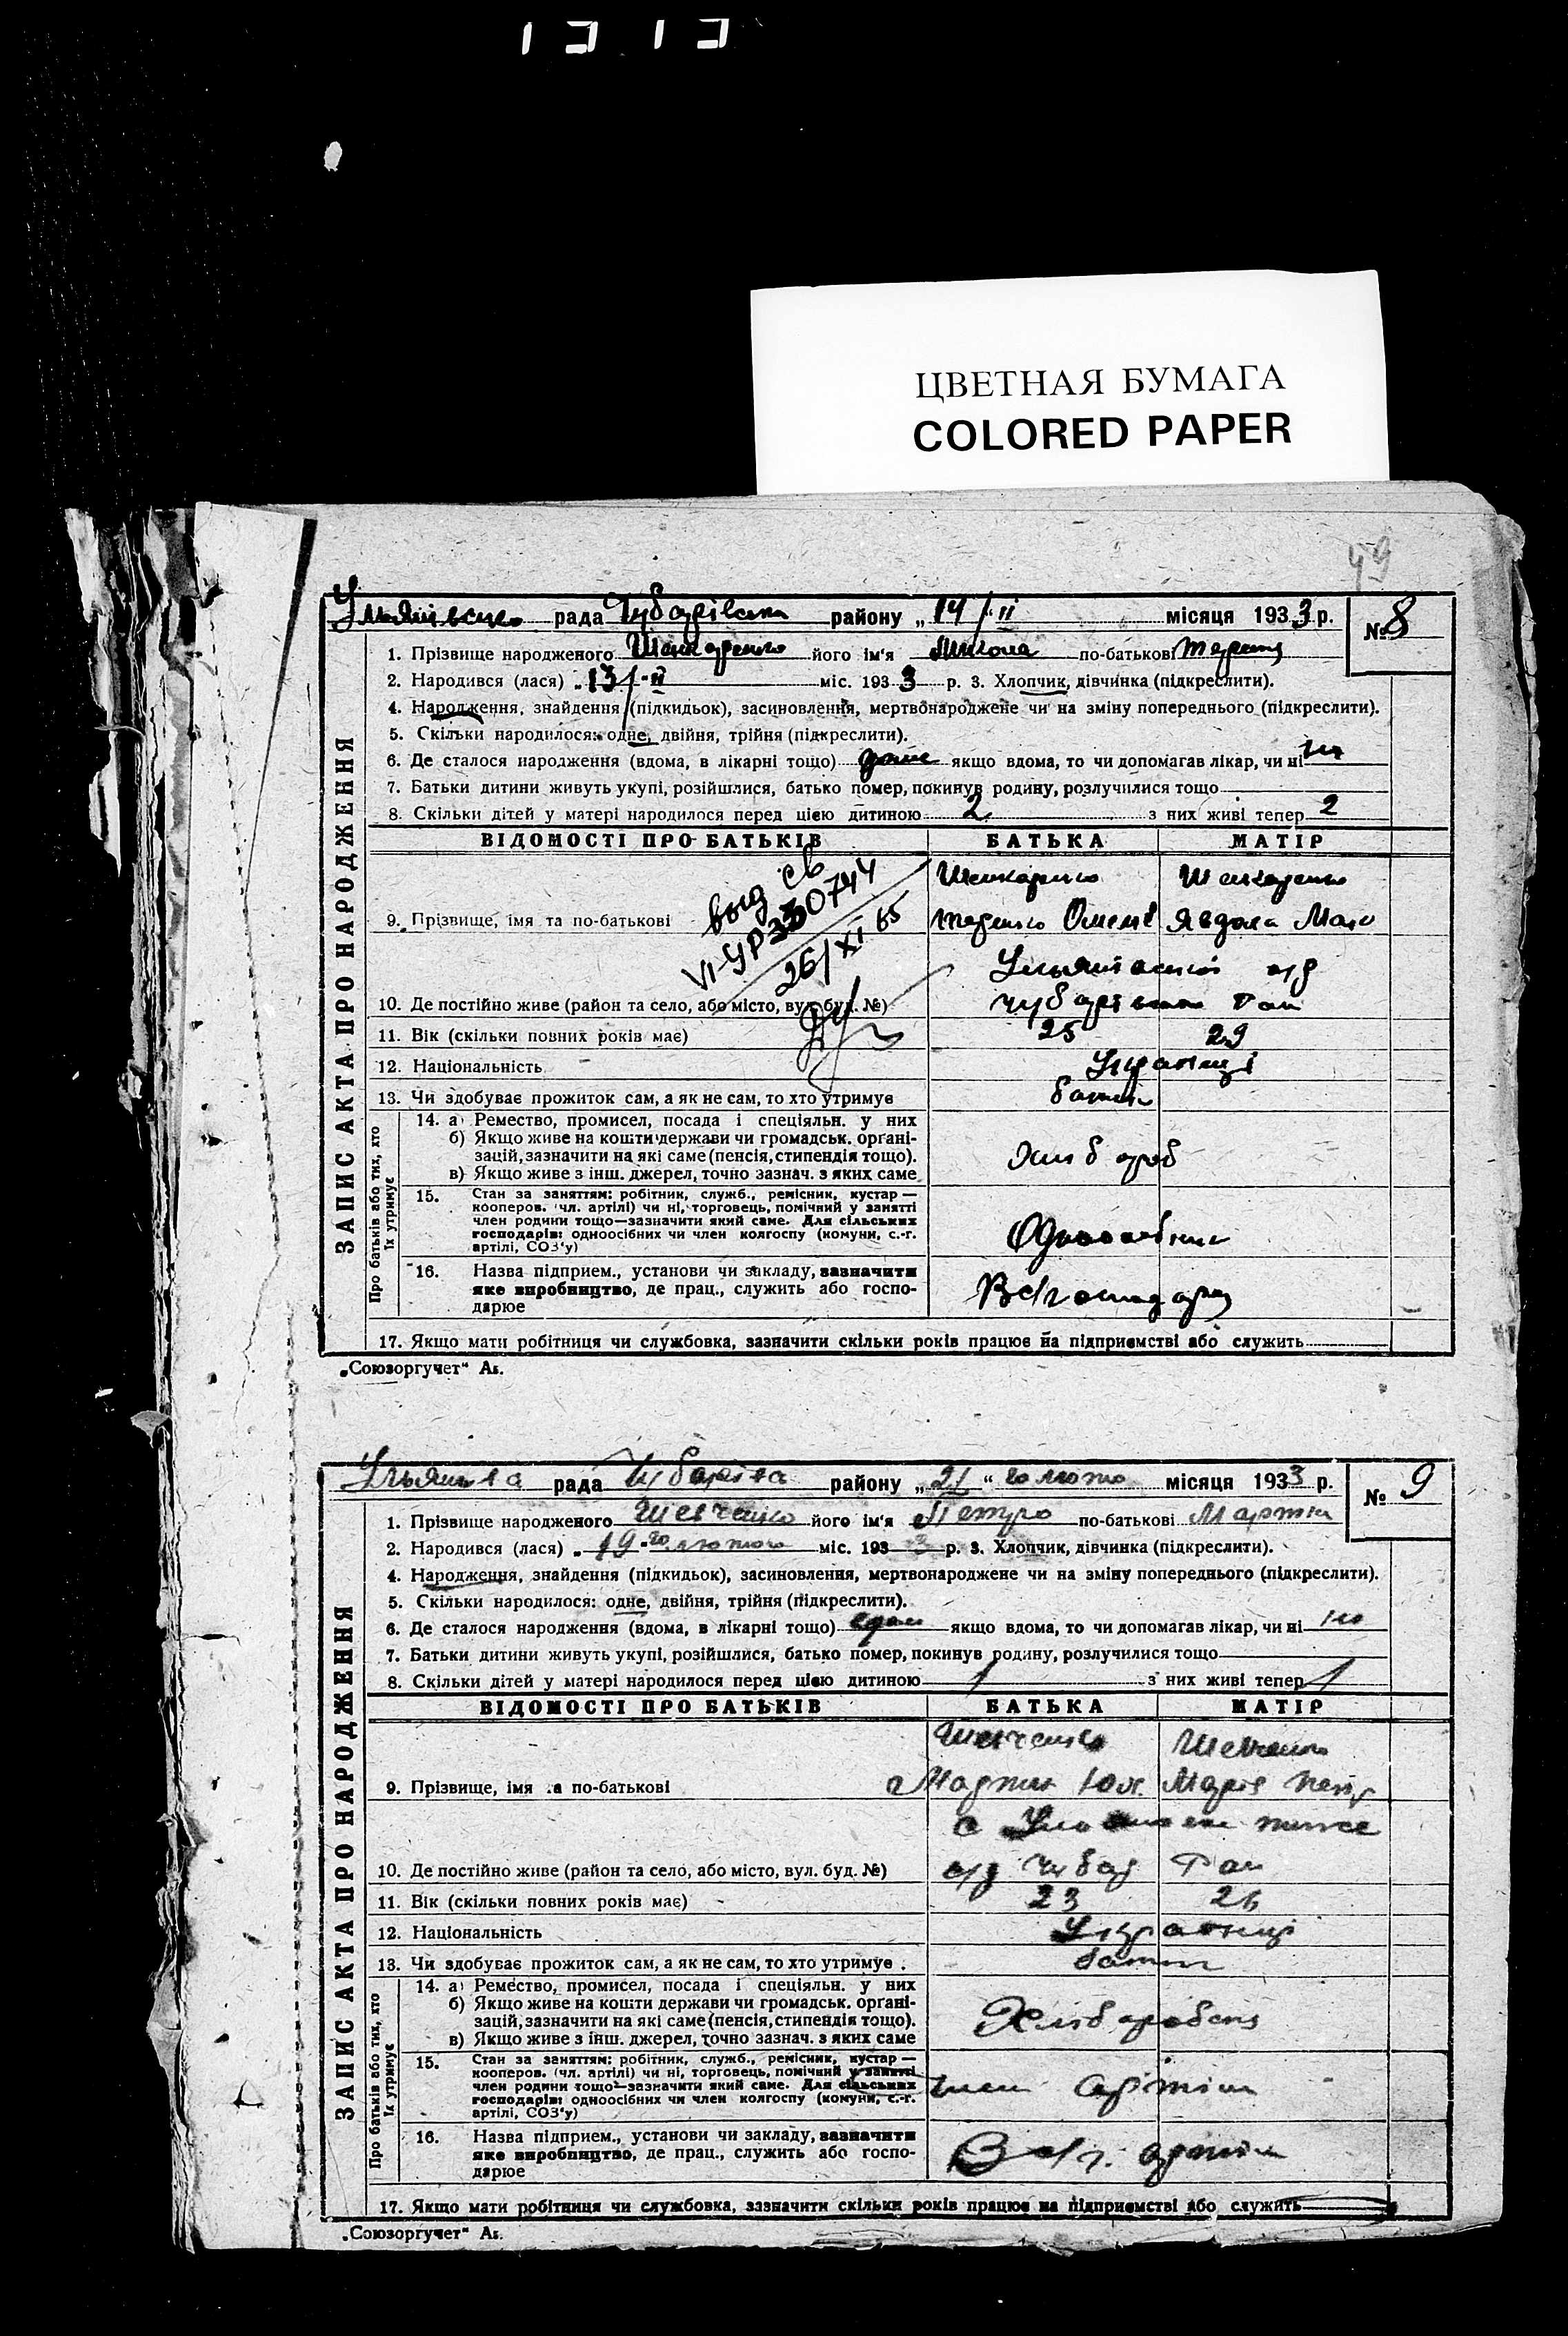 ЦВЕТНАЯ БУМАГА
COLORED PAPER
49
рада Чубарівськ району „14/ II місяця 1933 р. № 8
ЗАПИС АКТА ПРО НАРОДЖЕННЯ
1. Прізвище народженого його ім'я Микола по-батькові
2. Народився (лася) „13/ II міс. 1933 р. 3. Хлопчик, дівчинка (підкреслити).
4. Народження, знайдення (підкидьок), засиновлення, мертвонароджене чи на зміну попереднього (підкреслити).
5. Скільки народилося: одне, двійня, трійня (підкреслити).
6. Де сталося народження (вдома, в лікарні тощо) якщо вдома, то чи допомагав лікар, чи ні ні
7. Батьки дитини живуть укупі, розійшлися, батько помер, покинув родину, розлучилися тощо
8. Скільки дітей у матері народилося перед цією дитиною 2 з них живі тепер 2
ВІДОМОСТІ ПРО БАТЬКІВ БАТЬКА МАТІР
выд св
VI-УР 330744
26/XI 65
9. Прізвище, імя та по-батькові
10. Де постійно живе (район та село, або місто, вул. буд. №)
11. Вік (скільки повних років має) 25 29
12. Національність Українці
13. Чи здобуває прожиток сам, а як не сам, то хто утримує
Про батьків або тих, хто їх утримує
14. а) Ремество, промисел, посада і спеціяльн. у них
б) Якщо живе на кошти держави чи громадськ. органі-
зацій, зазначити на які саме (пенсія, стипендія тощо). Хлібороб
в) Якщо живе з інш. джерел, точно зазнач. з яких саме
15. Стан за заняттям: робітник, служб., ремісник, кустар —
кооперов. (чл. артілі) чи ні, торговець, помічний у занятті
член родини тощо—зазначити який саме. Для сільських
господарів: одноосібних чи член колгоспу (комуни, с.-г.
артілі, СОЗ'у)
16. Назва підприєм., установи чи закладу, зазначити
яке виробництво, де прац., служить або госпо-
дарює
17. Якщо мати робітниця чи службовка, зазначити скільки років працює на підприємстві або служить
„Союзоргучет“ Аг.
рада району „21“ го лютого місяця 1933 р. № 9
ЗАПИС АКТА ПРО НАРОДЖЕННЯ
1. Прізвище народженого Шевченко його ім'я Петро по-батькові
2. Народився (лася) „19-го лютого міс. 1933 р. 3. Хлопчик, дівчинка (підкреслити).
4. Народження, знайдення (підкидьок), засиновлення, мертвонароджене чи на зміну попереднього (підкреслити).
5. Скільки народилося: одне, двійня, трійня (підкреслити).
6. Де сталося народження (вдома, в лікарні тощо) якщо вдома, то чи допомагав лікар, чи ні
7. Батьки дитини живуть укупі, розійшлися, батько помер, покинув родину, розлучилися тощо
8. Скільки дітей у матері народилося перед цією дитиною 1 з них живі тепер 1
ВІДОМОСТІ ПРО БАТЬКІВ БАТЬКА МАТІР
Шевченко Шевченко
9. Прізвище, імя та по-батькові Мартин Марія
10. Де постійно живе (район та село, або місто, вул. буд. №)
11. Вік (скільки повних років має) 23 26
12. Національність Українці
13. Чи здобуває прожиток сам, а як не сам, то хто утримує
Про батьків або тих, хто їх утримує
14. а) Ремество, промисел, посада і спеціяльн. у них
б) Якщо живе на кошти держави чи громадськ. органі-
зацій, зазначити на які саме (пенсія, стипендія тощо).
в) Якщо живе з інш. джерел, точно зазнач. з яких саме
15. Стан за заняттям: робітник, служб., ремісник, кустар —
кооперов. (чл. артілі) чи ні, торговець, помічний у занятті
член родини тощо—зазначити який саме. Для сільських член артіли
господарів: одноосібних чи член колгоспу (комуни, с.-г.
артілі, СОЗ'у)
16. Назва підприєм., установи чи закладу, зазначити
яке виробництво, де прац., служить або госпо-
дарює
17. Якщо мати робітниця чи службовка, зазначити скільки років працює на підприємстві або служить
„Союзоргучет“ Аг.